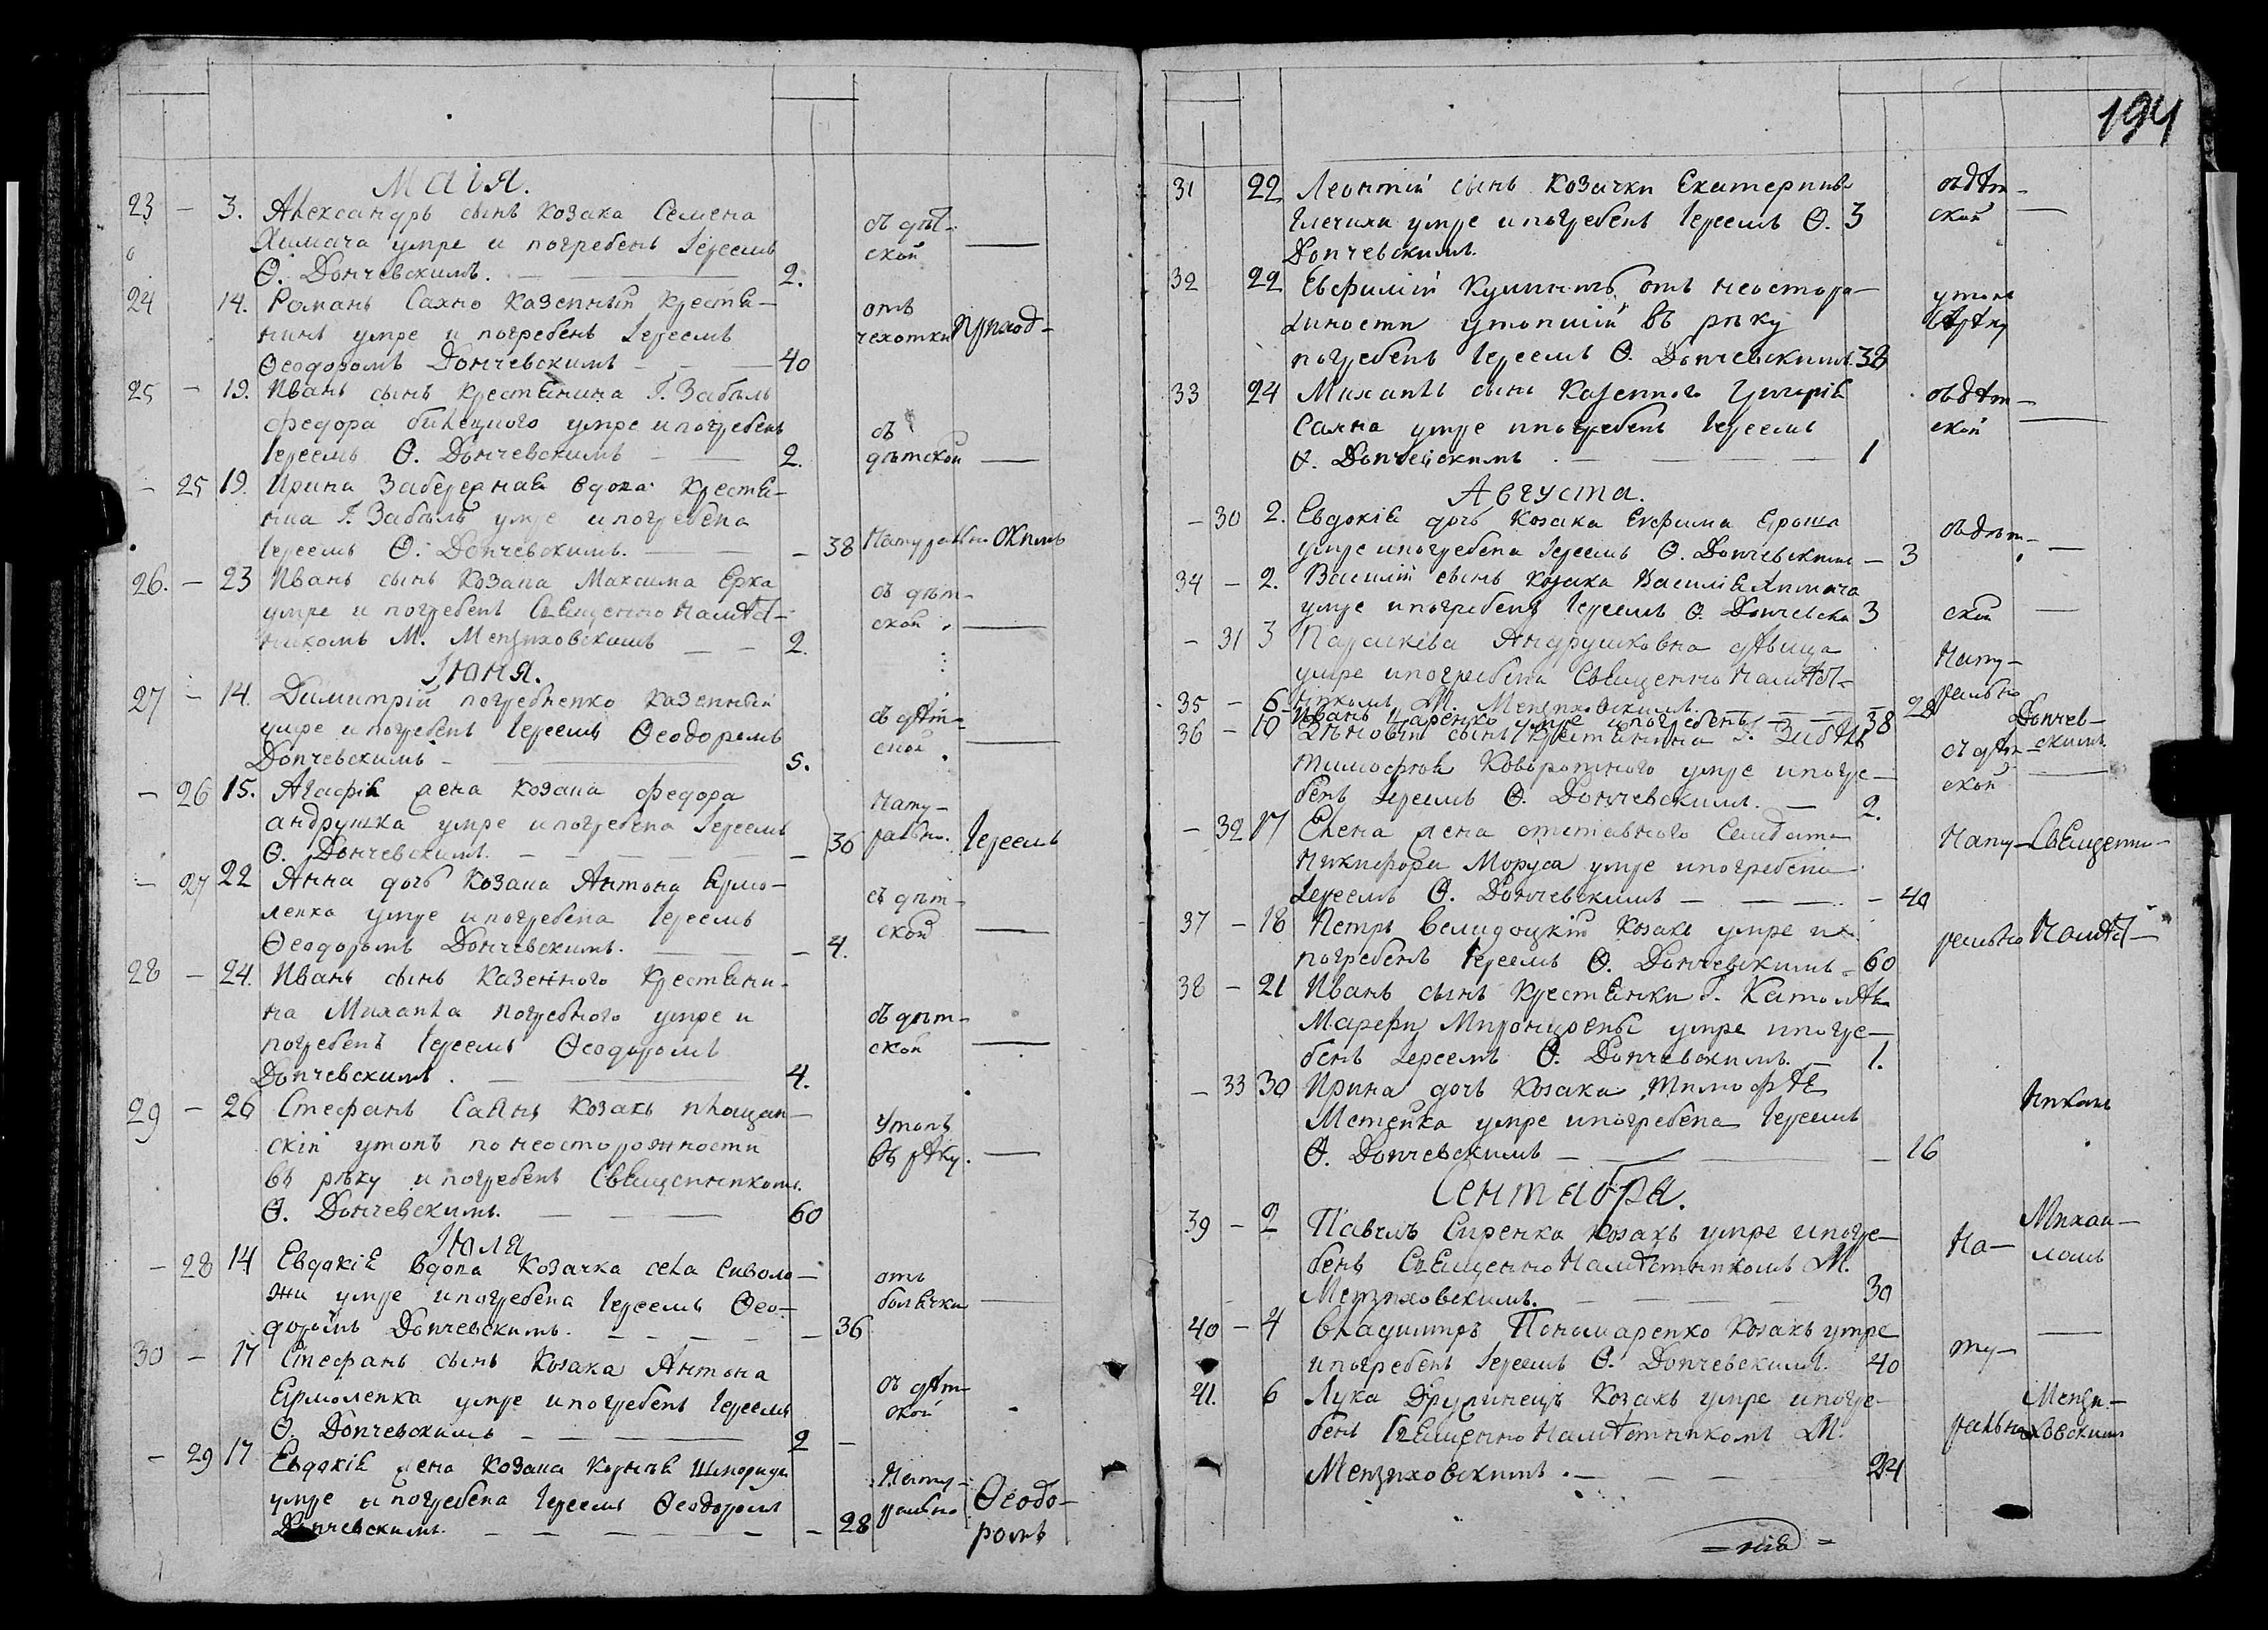 Маія.
23 — 3. Александръ сынъ козака Семена
Химача умре и погребенъ Іереемъ
Ѳ. Дончевскимъ. — 2. съ дѣт-
ской —
24 14. Романъ Сахно казенный крестя-
нинъ умре и погребенъ Іереемъ
Ѳеодоромъ Дончевскимъ — 40 отъ
чехотки Приход-
25 — 19. Иванъ сынъ крестянина Г. Забѣлы
Федора умре и погребенъ
Іереемъ Ѳ. Дончевскимъ — 2. съ
дѣтской —
— 25 19. Ирина вдова крестя-
нка Г. Забѣлы умре и погребена
Іереемъ Ѳ. Дончевскимъ. — 38 Натурально скимъ
26. — 23 Иванъ сынъ козака Максима Ерка
умре и погребенъ Священнонамѣст-
никомъ М. Мензиховскимъ — 2. съ дѣт-
ской. —
Іюня.
27 — 14. Димитрій погребненко казенный
умре и погребенъ Іереемъ Ѳеодоромъ
Дончевскимъ — 5. съ дѣт-
ской. —
— 26 15. Агафія жена козака Федора
андрушка умре и погребена Іереемъ
Ѳ. Дончевскимъ. — 30 Нату-
рально. Іереемъ
— 27 22 Анна дочь козака Антона Ермо-
ленка умре и погребена Іереемъ
Ѳеодоромъ Дончевскимъ. — 4. съ дѣт-
ской —
28 — 24. Иванъ сынъ казенного крестяни-
на Михаила погребного умре и
погребенъ Іереемъ Ѳеодоромъ
Дончевскимъ. — 4. съ дѣт-
ской —
29 — 26 Стефанъ Саянъ козакъ
скій утопъ по неосторожности
въ рѣку и погребенъ Священникомъ
Ѳ. Дончевскимъ. — 60 Утопъ
въ рѣку. —
Іюля
— 28 14 Евдокія вдова козачка села Сиволо-
жи умре и погребена Іереемъ Ѳео-
доромъ Дончевскимъ. — 36 отъ
болячки —
30 — 17 Стефанъ сынъ козака Антона
Ермоленка умре и погребенъ Іереемъ
Ѳ. Дончевскимъ — 2 — съ дѣт-
ской
— 29 17 Евдокія жена козака
умре и погребена Іереемъ Ѳеодоромъ
Дончевскимъ. — 28 Нату-
рально Ѳеодо-
ромъ
194
31 22 Леонтій сынъ козачки Екатерины
умре и погребенъ Іереемъ Ѳ. 3
Дончевскимъ. съ дѣт-
ской —
32 22 Евфимій отъ неосторо-
жности утопшій въ рѣку
погребенъ Іереемъ Ѳ. Дончевскимъ. 38 утопъ
въ рѣку
33 24 Михаилъ сынъ казенного Григорія
Сахна умре и погребенъ Іереемъ
Ѳ. Дончевскимъ. — 1 съ дѣт-
ской —
Августа.
— 30 2. Евдокія дочь козака Евфима Ероша
умре и погребена Іереемъ Ѳ. Дончевскимъ — 3 съ дѣт- —
34 — 2. Василій сынъ козака Василія Химача
умре и погребенъ Іереемъ Ѳ. Дончевски 3 ской —
— 31 3 Параскева Андрушковна дѣвица
умре и погребена Священнонамѣст-
никомъ М. Мензиховскимъ. — 28 Нату-
рально
35 — 6 Иванъ Царенко умре и погребенъ — 38 Дончев-
скимъ
36 — 10 сынъ крестянина Г. Забѣлы
тимофея Коворотного умре и погре-
бенъ Іереемъ Ѳ. Дончевскимъ. — 2. съ дѣт-
ской —
— 32 17 Елена жена отставного Солдата
Никифора Моруса умре и погребена
Іереемъ Ѳ. Дончевскимъ — 40 Нату- Священно-
37 — 18 Петръ Велидоцкій козакъ умре и
погребенъ Іереемъ Ѳ. Дончевскимъ — 60 рально Намѣст-
38 — 21 Иванъ сынъ крестянки Г.
Марфы умре и погре-
бенъ Іереемъ Ѳ. Дончевскимъ. — 1.
— 33 30 Ирина дочь козака Тимофѣя
умре и погребена Іереемъ
Ѳ. Дончевскимъ — 16 никомъ
Сентября.
39 — 2 Павелъ Сиренка козакъ умре и погре-
бенъ Священнонамѣстникомъ М.
Мензиховскимъ. — 30 На- Михаи-
ломъ
40 — 4 Владимиръ Пономаренко козакъ умре
и погребенъ Іереемъ Ѳ. Дончевскимъ. 40 ту- —
41. 6 Лука Дружинецъ козакъ умре и погре-
бенъ Священнонамѣстникомъ М.
Мензиховскимъ. — 24 рально Мензи-
ховскимъ